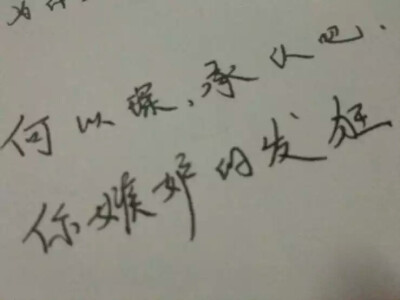 何以琛,承认吧.
你嫉妒的发狂